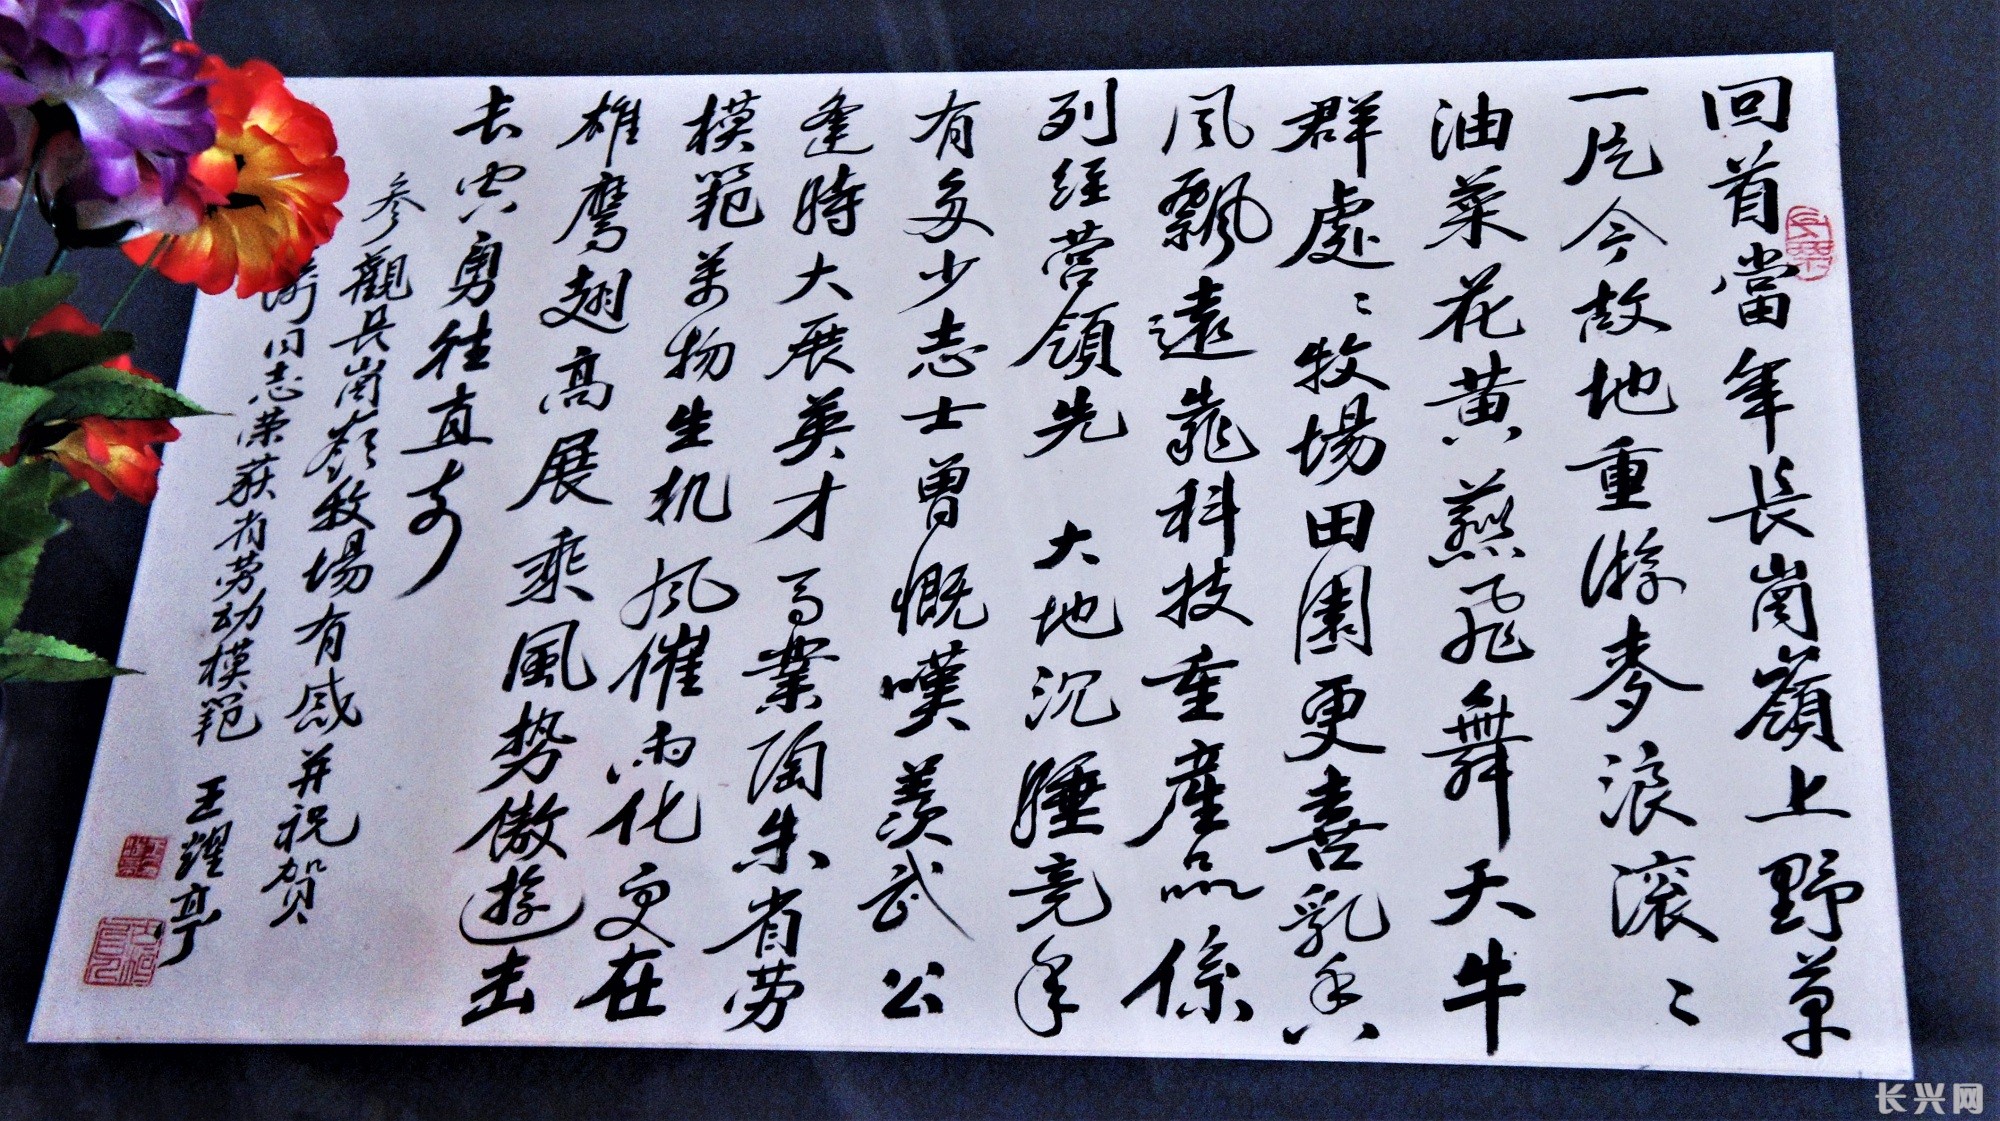 回首當年長崗嶺上野草
一片今故地重游麥浪滚〻
油菜花黄燕飛舞天牛
群處〻牧場田園更喜乳香
風飄遠靠科技重產品係
列经营領先大地沉睡竞年
有多少志士曾慨嘆羨武公
逢時大展英才马業陶朱省劳
模範萬物生机风催雨化更在
雄鹰翅高展乘風势傲游击
去勇往直前
参觀長崗嶺牧場有感并祝贺
同志荣获省劳动模範 王耀亭
长兴网